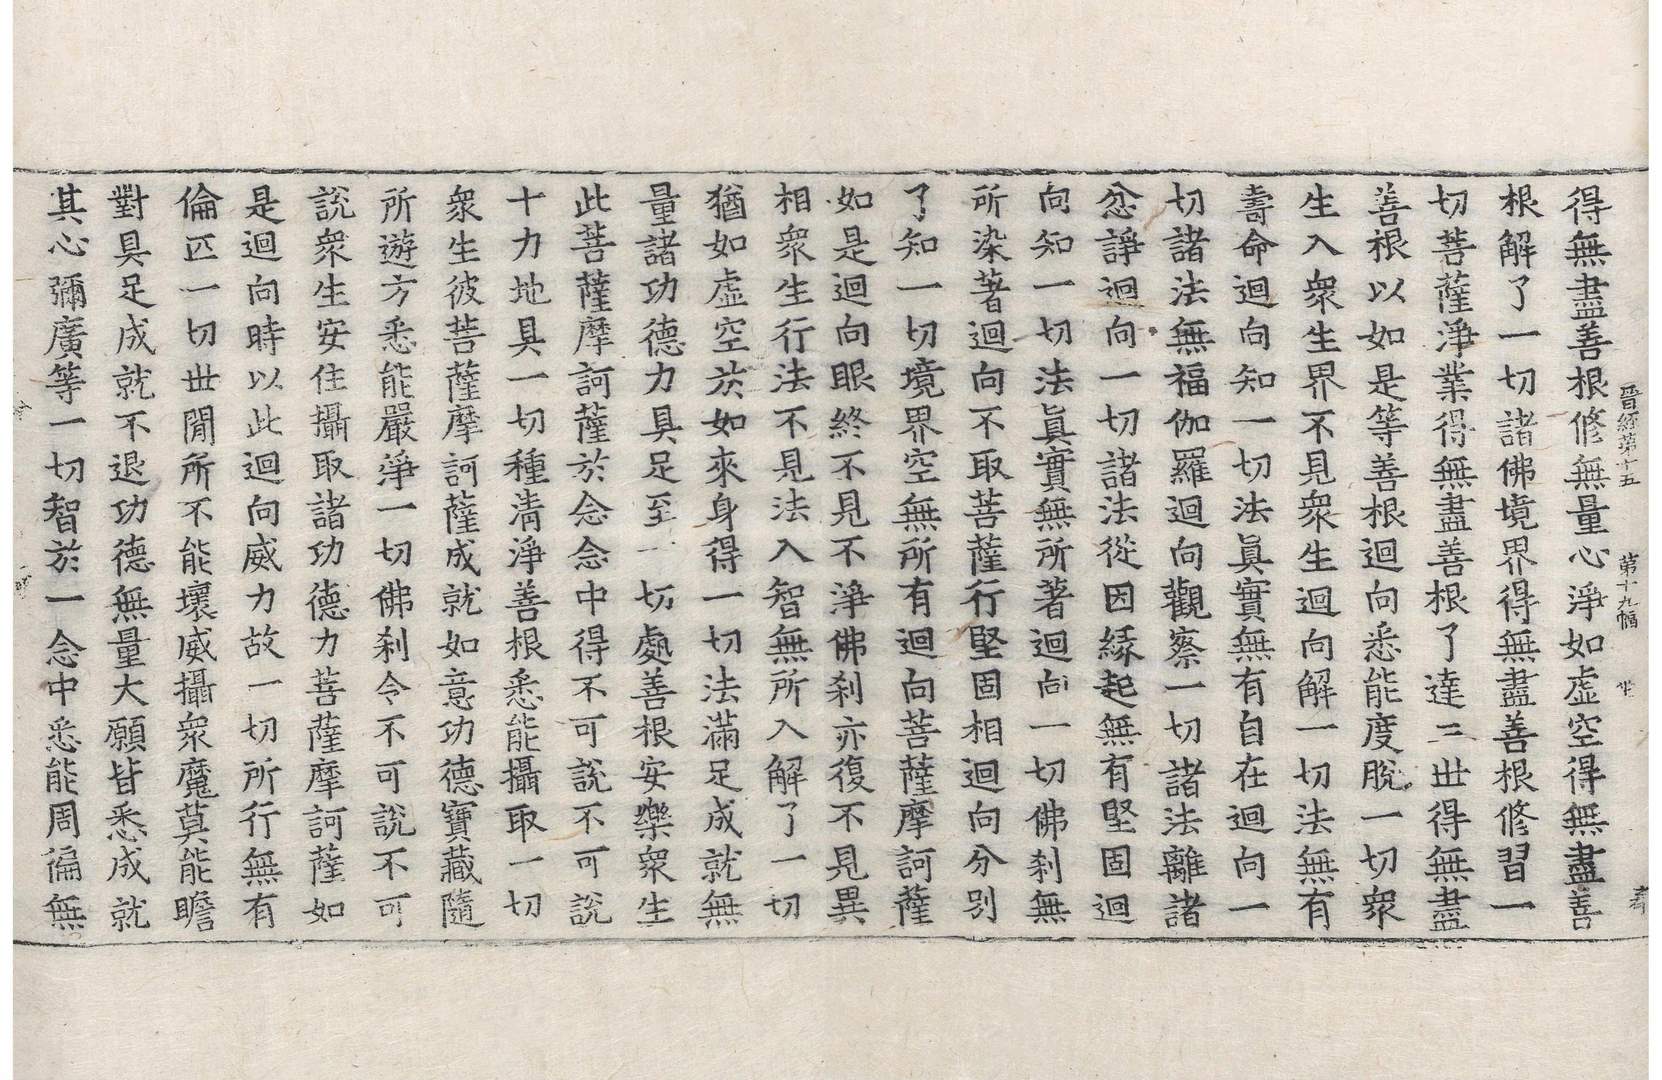 晉經第十五　第十九幅
得無盡善根修無量心淨如虛空得無盡善
根解了一切諸佛境界得無盡善根修習一
切菩薩淨業得無盡善根了達三世得無盡
善根以如是等善根迴向悉能度脫一切衆
生入衆生界不見衆生迴向解一切法無有
壽命迴向知一切法眞實無有自在迴向一
切諸法無福伽羅迴向觀察一切諸法離諸
忿諍迴向一切諸法從因緣起無有堅固迴
向知一切法眞實無所著迴向一切佛刹無
所染著迴向不取菩薩行堅固相迴向分別
了知一切境界空無所有迴向菩薩摩訶薩
如是迴向眼終不見不淨佛刹亦復不見異
相衆生行法不見法入智無所入解了一切
猶如虛空於如來身得一切法滿足成就無
量諸功德力具足至一切處善根安樂衆生
此菩薩摩訶薩於念念中得不可說不可說
十力地具一切種淸淨善根悉能攝取一切
衆生彼菩薩摩訶薩成就如意功德寶藏隨
所遊方悉能嚴淨一切佛刹令不可說不可
說衆生安住攝取諸功德力菩薩摩訶薩如
是迴向時以此迴向威力故一切所行無有
倫匹一切世閒所不能壞威攝衆魔莫能瞻
對具足成就不退功德無量大願皆悉成就
其心彌廣等一切智於一念中悉能周徧無